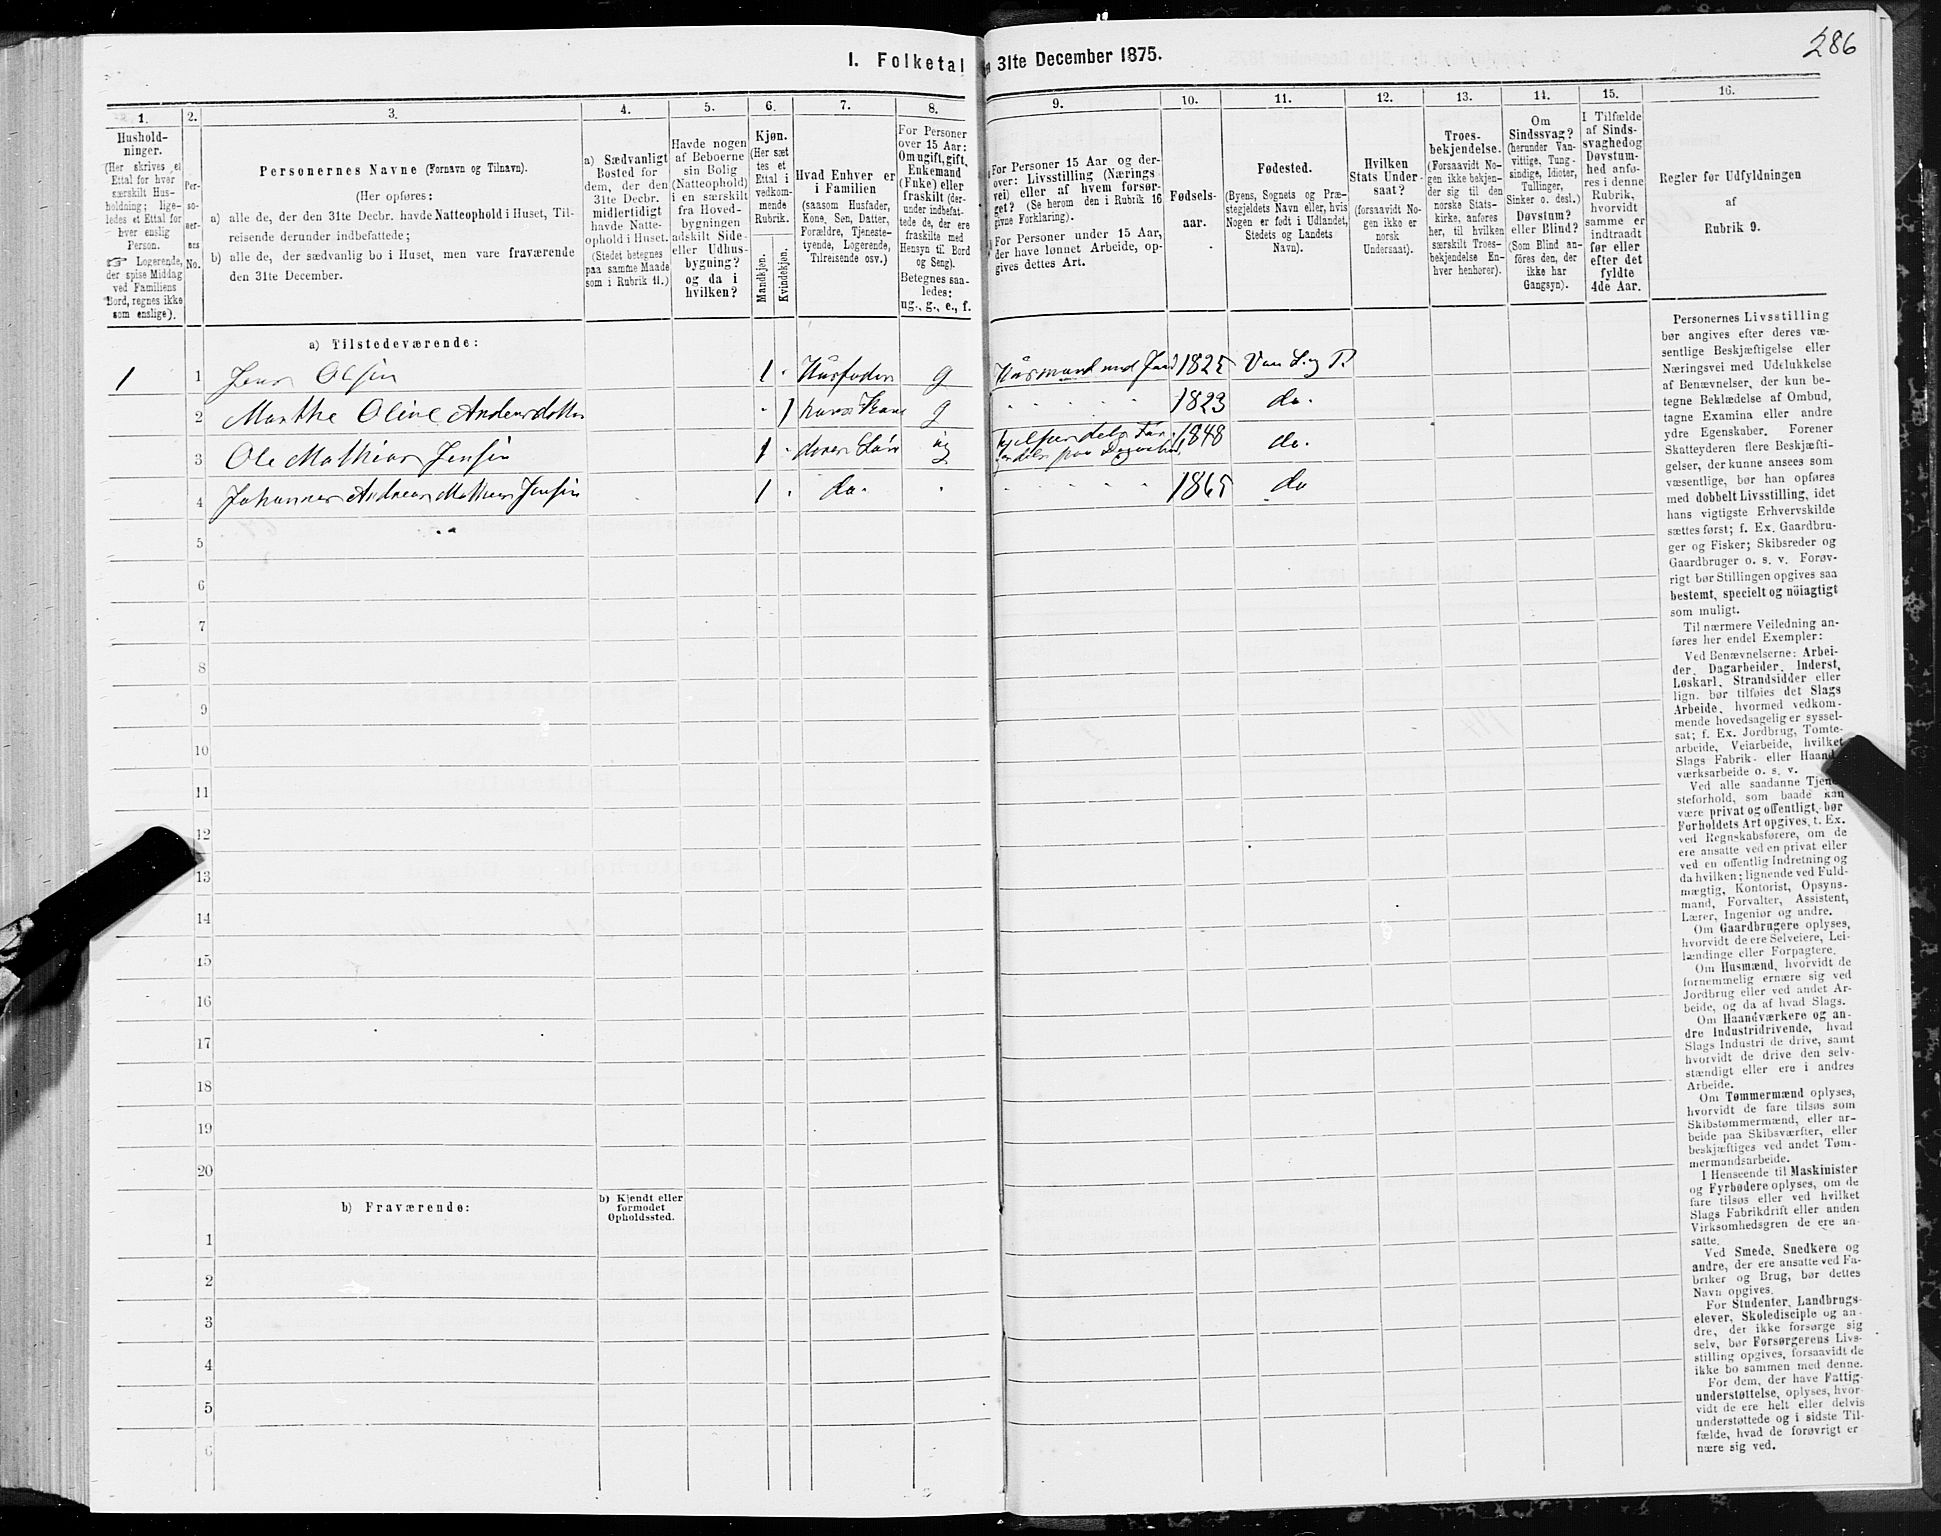 286
I. Folketal
31te December 1875.
1.
2.
3.
4.
5.
6.
7.
8.
9.
10.
11.
12.
13.
14.
15.
16.
Hushold-
ninger.
(Her skrives et
Ettal for hver
særskilt Hus-
holdning; lige-
ledes et Ettal for
hver enslig
Person.
☞ Logerende,
der spise Middag
ved Familiens
Bord, regnes ikke
som enslige).
Per-
so-
ner-
nes
No.
Personernes Navne (Fornavn og Tilnavn).
(Her opføres:
a) alle de, der den 31te Decbr. havde Natteophold i Huset, Til-
reisende derunder indbefattede;
b) alle de, der sædvanlig bo i Huset, men vare fraværende
den 31te December.
a) Sædvanligt
Bosted for
dem, der den
31te Decbr.
midlertidigt
havde Natte-
ophold i Huset.
(Stedet betegnes
paa samme Maade
som i Rubrik 11.)
Havde nogen
af Beboerne
sin Bolig
(Natteophold)
i en særskilt
fra Hoved-
bygningen
adskilt Side-
eller Udhus-
bygning?
og da i
hvilken?
Kjøn.
(Her sæt
tes et
Ettal i
vedkom-
mende
Rubrik.
Mandkjøn.
Kvindekjøn.
Hvad Enhver er
i Familien
(saasom Husfader,
Kone, Søn, Datter,
Forældre, Tjeneste-
tyende, Logerende,
Tilreisende osv.)
For Personer
over 15 Aar:
Om ugift, gift,
Enkemand
(Enke) eller
fraskilt (der-
under indbefat-
tede de, der ere
fraskilte med
Hensyn til Bord
og Seng).
Betegnes saa-
ledes:
ug., g., e., f.
For Personer 15 Aar og der-
over: Livsstilling (Nærings
vei) eller af hvem forsør-
get? (Se herom den i Rubrik 16
givne Forklaring).
For Personer under 15 Aar,
der have lønnet Arbeide, op-
gives dettes Art.
Fødsels-
aar.
Fødested.
(Byens, Sognets og Præ-
stegjeldets Navn eller, hvis
Nogen er født i Udlandet,
Stedets og Landets
Navn).
Hvilken
Stats Under-
saat?
(forsaavidt No-
gen ikke er
norsk
Undersaat).
Troes-
bekjendelse.
(Forsaavidt No-
gen ikke bekjen-
der sig til den
norske Stats-
kirke, anføres
her, til hvilken
særskilt Troes-
bekjendelse En-
hver henhører).
Om
Sindssvag?
(herunder Van-
vittige, Tung-
sindige, Idioter,
Tullinger,
Sinker o. desl.)
Døvstum?
eller Blind?
(Som Blind an-
føres den, der
ikke har
Gangsyn).
I Tilfælde
af Sinds-
svaghed og
Døvstum-
hed anfø-
res i denne
Rubrik,
hvorvidt
samme er
indtraadt
før eller
efter det
fyldte
4de Aar.
Regler for Udfyldningen
af
Rubrik 9.
a) Tilstedeværende:
1 1 Jens Olsen 1 Husfader g Husmand med Jord 1825
2 Marthe Oline Andersdatter 1 hans Kone g 1823 do.
3 Ole Mathias Jensen 1 deres Søn ug 1848 do.
4 Johannes Andreas Mathias Jensen 1 do. 1865 do
5
6
7
8
9
10
11
12
13
14
15
16
17
18
19
20
b) Fraværende:
b) Kjendt eller
formodet
Opholdssted.
1
2
3
4
5
6
Personernes Livsstilling
bør angives efter deres væ-
sentlige Beskjæftigelse eller
Næringsvei med Udelukkelse
af Benævnelser, der kun be-
tegne Beklædelse af Ombud,
tagne Examina eller andre
ydre Egenskaber. Forener
Skatteyderen flere Beskjæfti-
gelser, der kunne ansees som
væsentlige, bør han opføres
med dobbelt Livsstilling, idet
hans vigtigste Erhvervskilde
sættes først; f. Ex. Gaardbru-
ger og Fisker; Skibsreder og
Gaardbruger o. s. v. Forøv-
rigt bør Stillingen opgives saa
bestemt, specielt og nöiagtigt
som muligt.
Til nærmere Veiledning an-
føres her endel Exempler:
Ved Benævnelserne: Arbei-
der, Dagarbeider, Inderst,
Løskarl, Strandsidder eller
lign. bør tilføies det Slags
Arbeide, hvormed vedkom-
mende hovedsagelig er syssel-
sat; f. Ex. Jordbrug, Tomte-
arbeide, Veiarbeide, hvilket
Slags Fabrik- eller Haand-
værksarbeide o. s. v.
Ved alle saadanne Tjene-
steforhold, som baade kan
være privat og offentligt, bør
Forholdets Art opgives, t. Ex.
ved Regnskabsførere, om de
ere ansatte ved en privat eller
ved en offentlig Indretning og
da hvilken; lignende ved Fuld-
mægtig, Kontorist, Opsyns-
mand, Forvalter, Assistent,
Lærer, Ingeniør og andre.
Om Gaardbrugere oplyses,
hvorvidt de ere Selveiere, Lei-
lændinge eller Forpagtere.
Om Husmænd, hvorvidt de
fornemmelig ernære sig ved
Jordbrug eller ved andet Ar-
beide, og da af hvad Slags.
Om Haandværkere og an-
dre Industridrivende, hvad
Slags Industri de drive, samt
hvorvidt de drive den selv-
stændigt eller ere i andres
Arbeide.
Om Tømmermænd oplyses,
hvorvidt de fare tilsøs som
Skibstømmermænd, eller ar-
beide paa Skibsværfter, eller
beskjæftiges ved andet Tøm-
mermandsarbeide.
I Henseende til Maskinister
og Fyrbødere oplyses, om de
fare tilsøs eller ved hvilket
Slags Fabrikdrift eller anden
Virksomhedsgren de ere an-
satte.
Ved Smede, Snedkere og
andre, der ere ansatte ved Fa-
briker og Brug, bør dettes
Navn opgives.
For Studenter, Landbrugs-
elever, Skoledisciple og an-
dre, der ikke forsørge sig
selv, bør Forsørgerens Livs-
stilling opgives, forsaavidt de
ikke bo sammen med denne.
For dem, der have Fattig-
understøttelse, oplyses, hvor-
vidt de ere helt eller delvis
understøttede og i sidste Til-
fælde, hvad de forøvrigt er
nære sig ved.